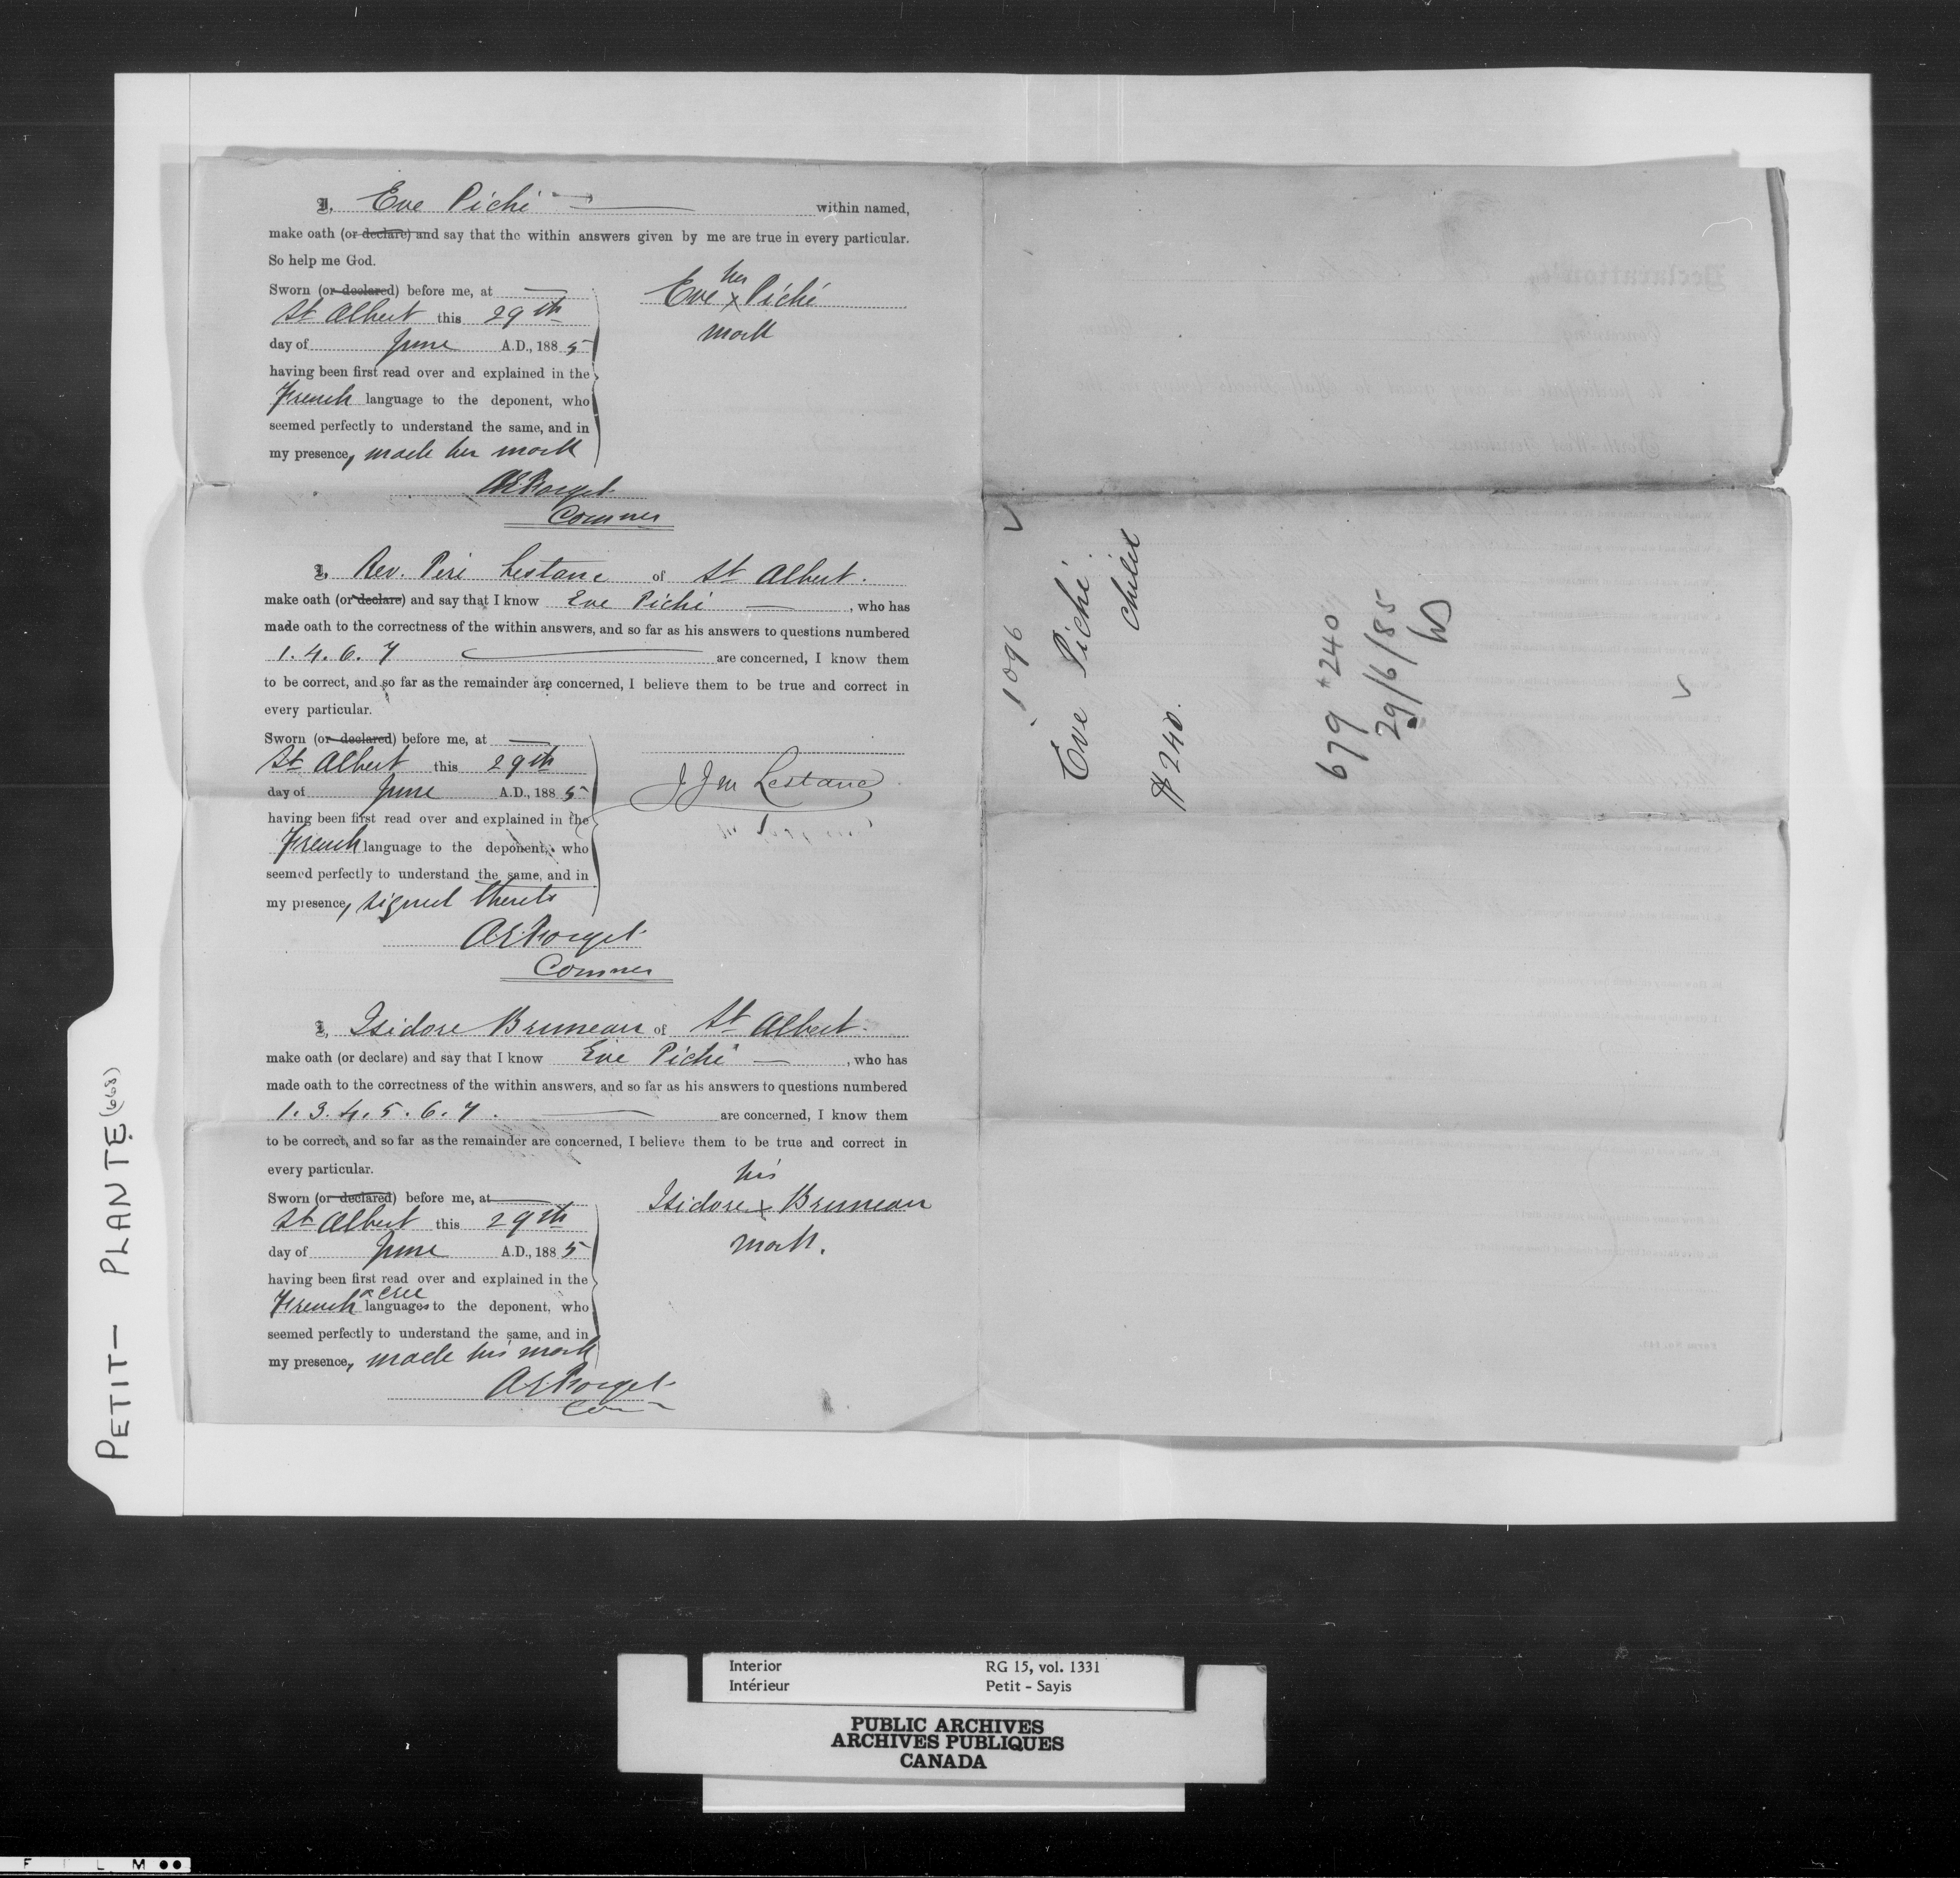 I, Eve Piché within named,
make oath (or declare) and say that the within answers given by me are true in every particular.
So help me God.
Sworn (or declared) before me, at
St Albert this 29th
day of June A.D., 1885
having been first read over and explained in the
French language to the deponent, who
seemed perfectly to understand the same, and in
my presence, made her mark
her
Eve x Piché
mark
AEForget
Commer
I, Rev. Père Lestanc of St Albert.
make oath (or declare) and say that I know Eve Piché, who has
made oath to the correctness of the within answers, and so far as his answers to questions numbered
1. 4. 6. 7 are concerned, I know them
to be correct, and so far as the remainder are concerned, I believe them to be true and correct in
every particular.
Sworn (or declared) before me, at
St Albert this 29th
day of June A.D., 1885
having been first read over and explained in the
French language to the deponent, who
seemed perfectly to understand the same, and in
my presence, signed thereto
J J M Lestanc
AEForget
Commer
I, Isidore Bruneau of St Albert.
make oath (or declare) and say that I know Eve Piché, who has
made oath to the correctness of the within answers, and so far as his answers to questions numbered
1. 3. 4. 5. 6. 7. are concerned, I know them
to be correct, and so far as the remainder are concerned, I believe them to be true and correct in
every particular.
Sworn (or declared) before me, at
St Albert this 29th
day of June A.D., 1885
having been first read over and explained in the
French & Cree languages to the deponent, who
seemed perfectly to understand the same, and in
my presence, made his mark
his
Isidore x Bruneau
mark.
AEForget
Com
1096
Eve Piché
Child
#240.
679 #240
29/6/85
PETIT — PLANTE (668)
Interior
Intérieur
RG 15, vol. 1331
Petit - Sayis
PUBLIC ARCHIVES
ARCHIVES PUBLIQUES
CANADA
FILM